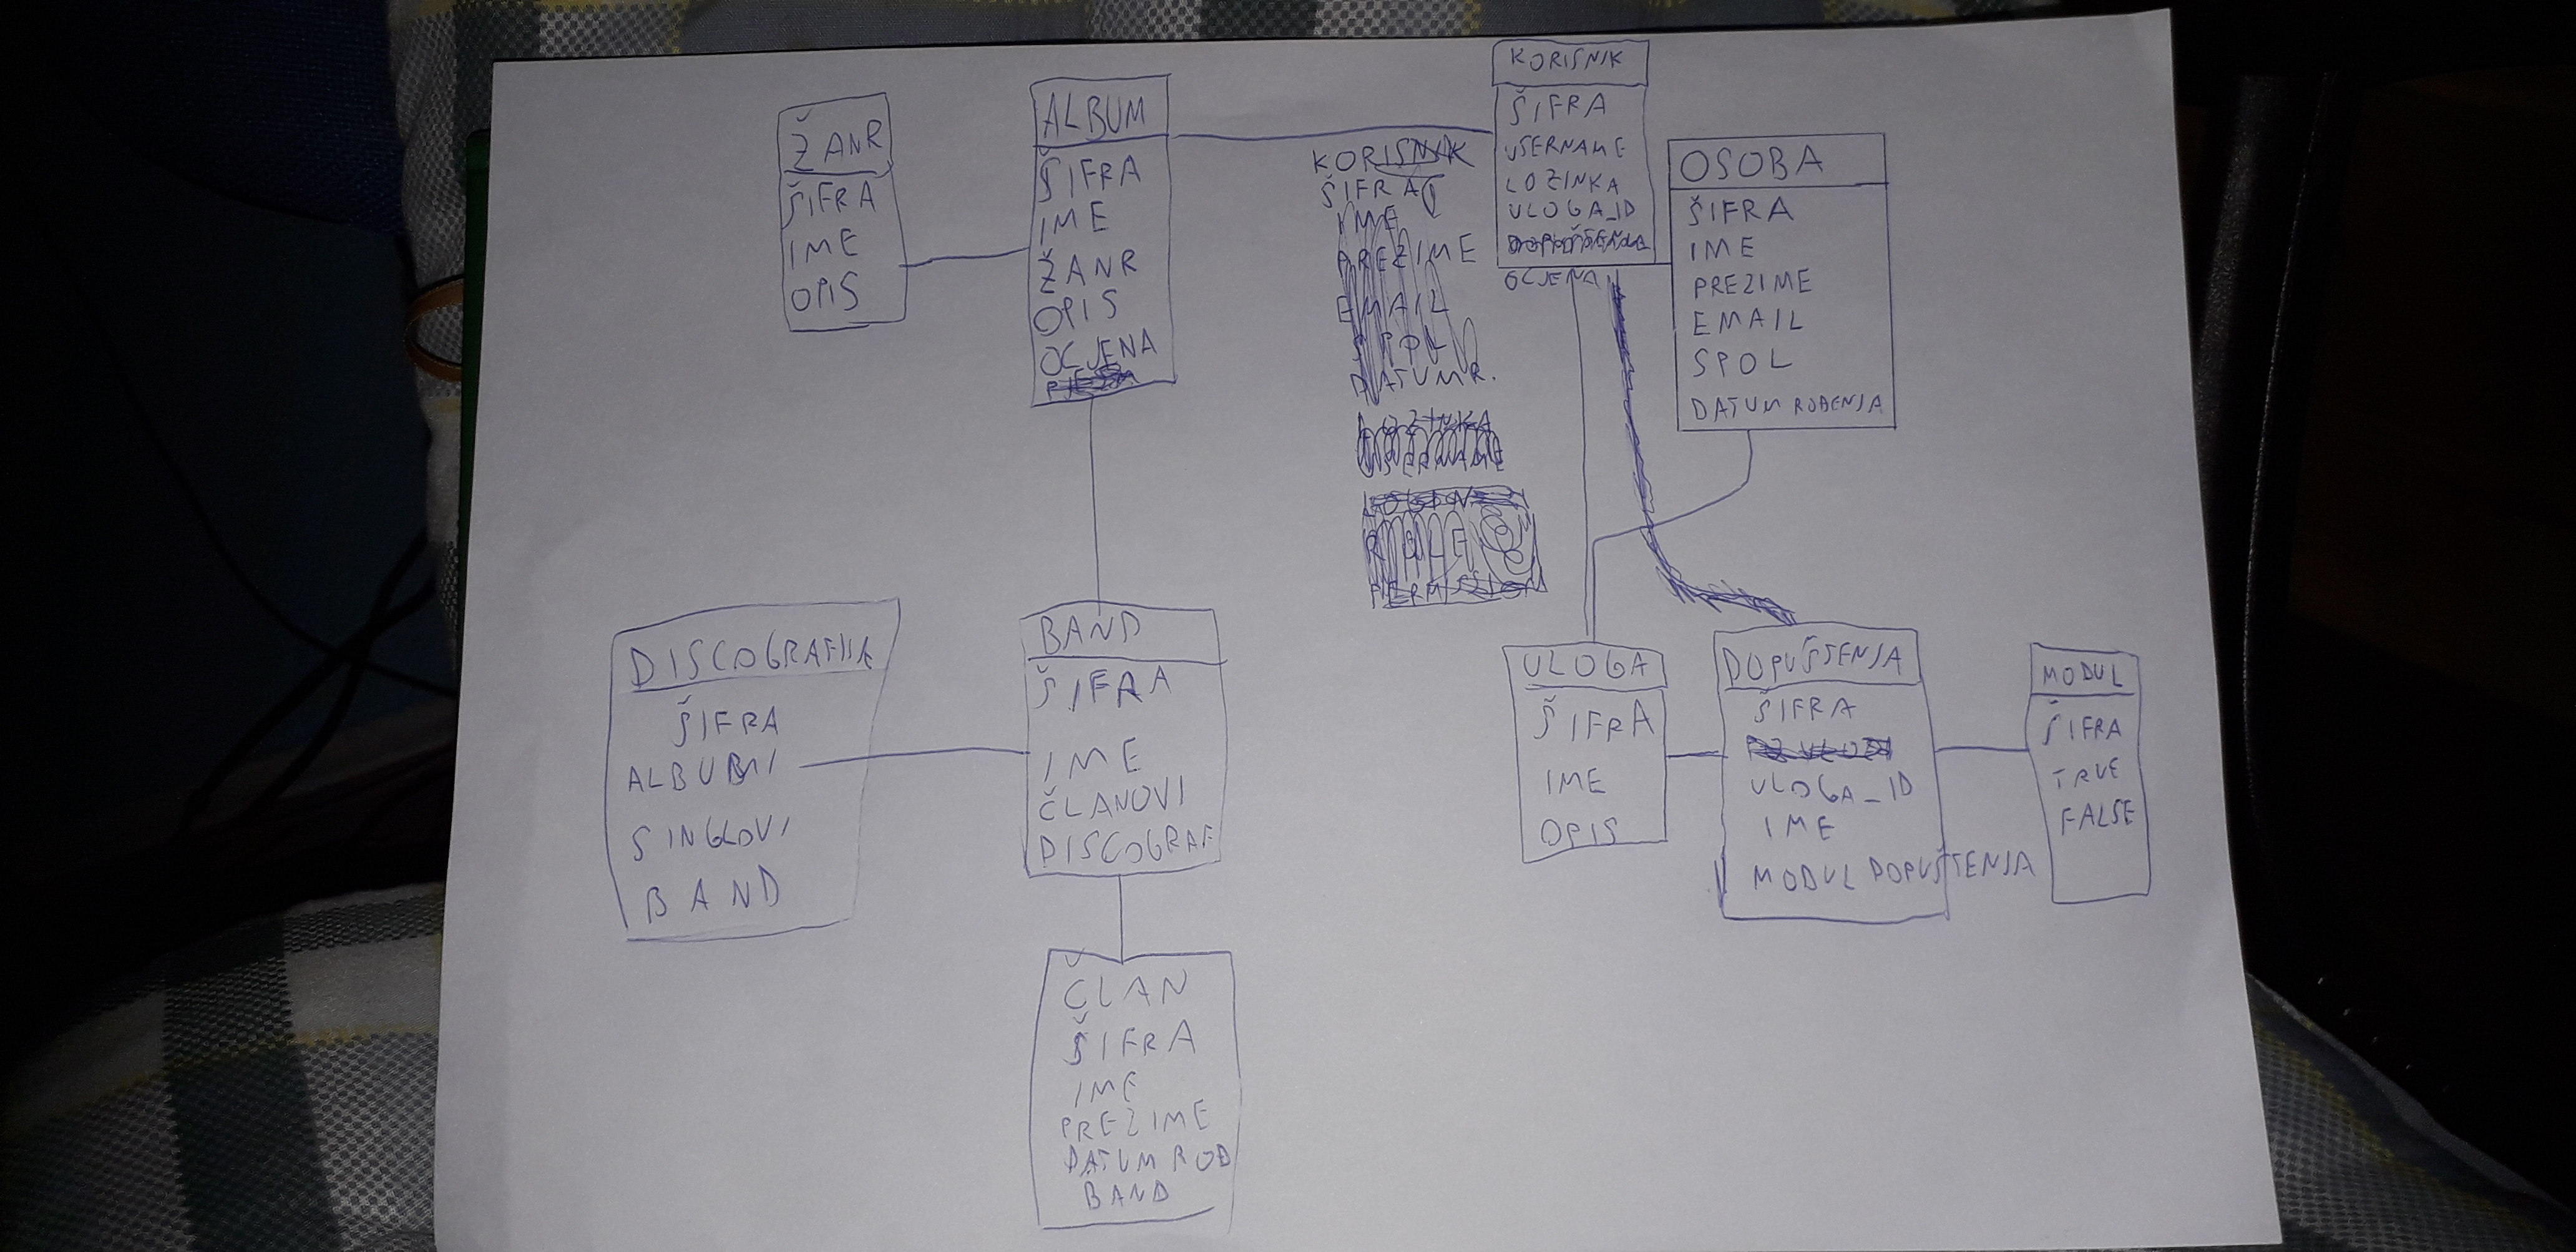 ŽANR
ŠIFRA
IME
OPIS
ALBUM
ŠIFRA
IME
ŽANR
OPIS
OCJENA
KORISNIK
ŠIFRA
IME
PREZIME
EMAIL
SPOL
DATUM R.
LOZINKA
KORISNIK
ŠIFRA
USERNAME
LOZINKA
ULOGA_ID
OCJENA
OSOBA
ŠIFRA
IME
PREZIME
EMAIL
SPOL
DATUM ROĐENJA
DISCOGRAFIJA
ŠIFRA
ALBUMI
SINGLOVI
BAND
BAND
ŠIFRA
IME
ČLANOVI
DISCOGRAF
ČLAN
ŠIFRA
IME
PREZIME
DATUM ROĐ
BAND
ULOGA
ŠIFRA
IME
OPIS
DOPUŠTENJA
ŠIFRA
ULOGA_ID
IME
MODUL DOPUŠTENJA
MODUL
ŠIFRA
TRUE
FALSE